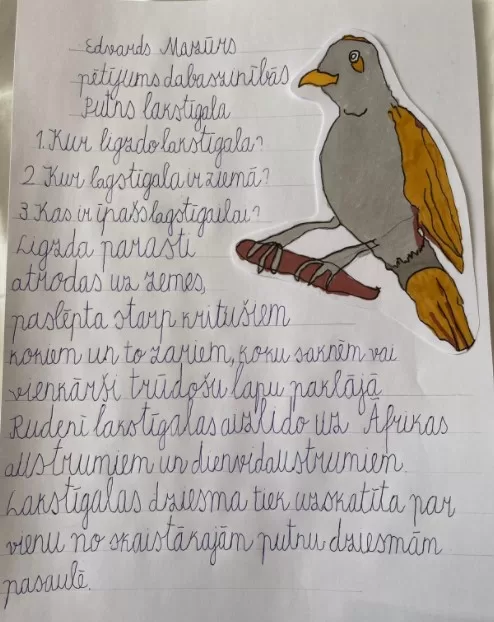 Edvards Mazūrs
pētījums dabaszinībās
Putns lakstīgala
1. Kur ligzdo lakstīgala?
2 Kur lagstīgala ir ziemā?
3 Kas ir īpašs lagstīgailai?
Ligzda parasti
atrodas uz zemes,
paslēpta starp kritušiem
kokiem un to zariem, koku saknēm vai
vienkārši trūdošu lapu paklājā
Rudenī lakstīgalas aizlido uz Āfrikas
austrumiem un dienvidaustrumiem.
Lakstīgalas dziesma tiek uzskatīta par
vienu no skaistākajām putnu dziesmām
pasaulē.